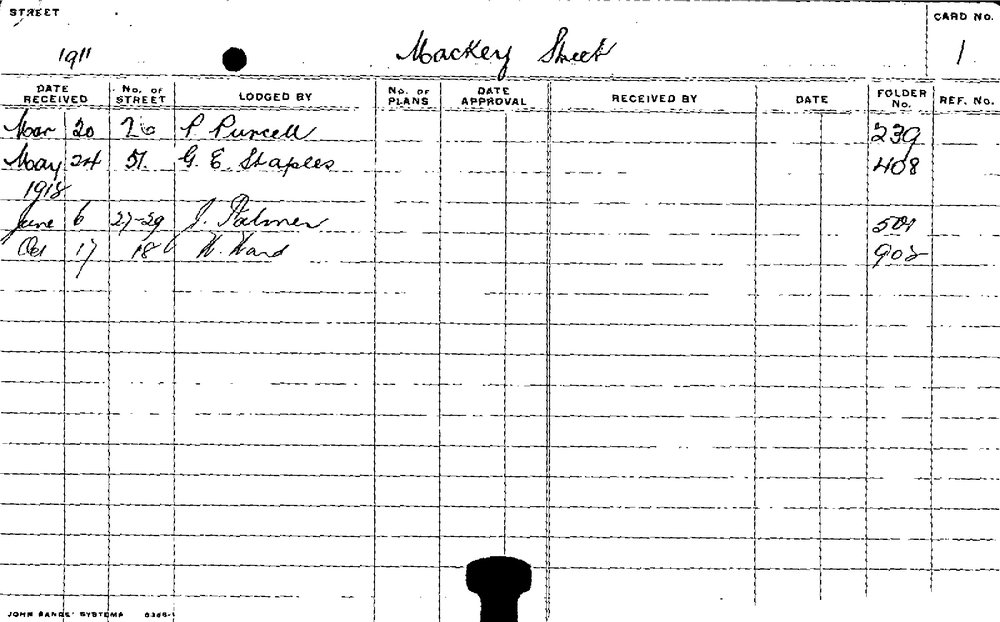 STREET
CARD No.
1911 Mackey Street 1
DATE RECEIVED No. OF STREET LODGED BY No. OF PLANS DATE APPROVAL RECEIVED BY DATE FOLDER No. REF. No.
Mar 20 26 P Purcell 239
May 24 51. G. E. Staples 408
1918
June 6 27-29 J. Palmer
Oct 17 18 W. Ward 902
JOHN SYSTEMS